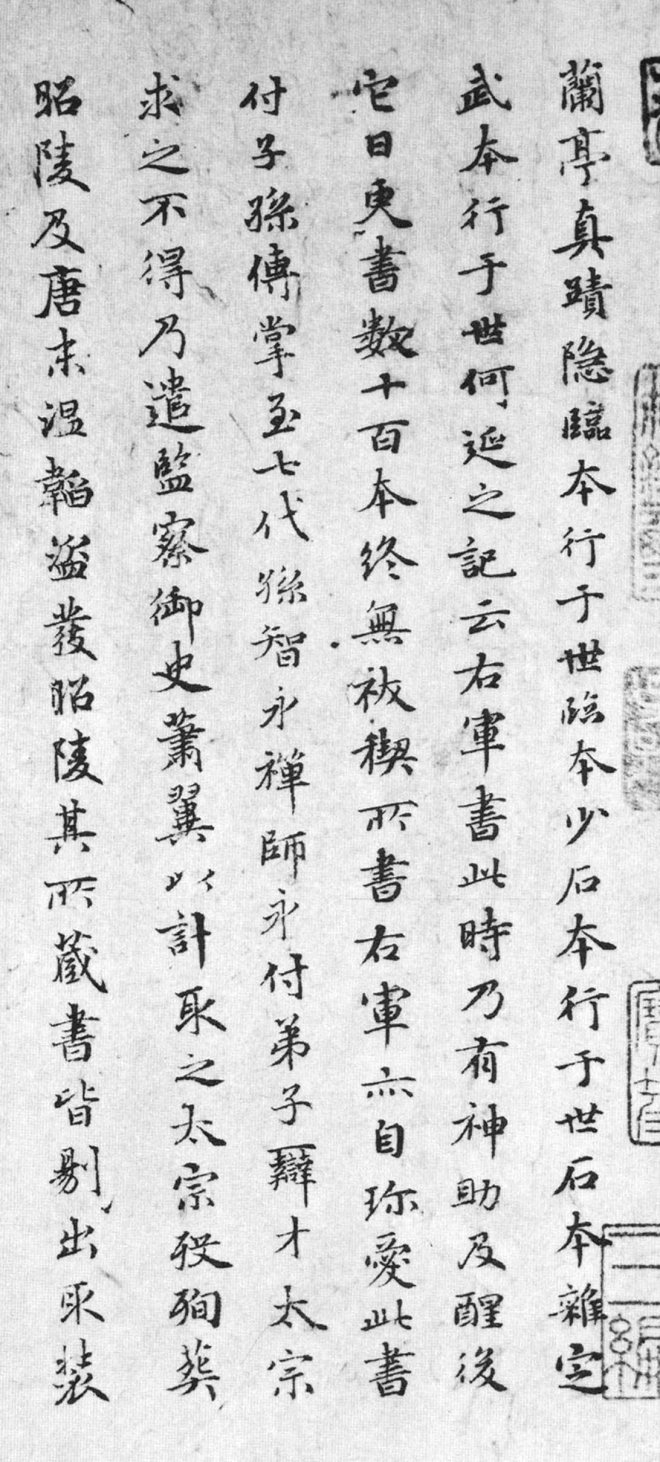 蘭亭真蹟隱臨本行于世臨本少石本行于世石本雜定
武本行于世何延之記云右軍書此時乃有神助及醒後
它日更書數十百本終無祓禊所書右軍亦自珎愛此書
付子孫傳掌至七代孫智永禪師永付弟子辯才太宗
求之不得乃遣監察御史蕭翼以計取之太宗歿殉葬
昭陵及唐末溫韜盜發昭陵其所藏書皆剔出取裝